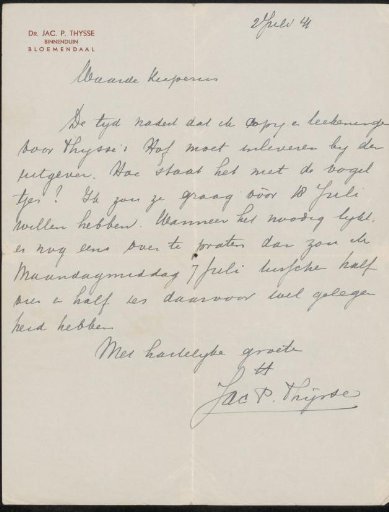 DR. JAC. P. THYSSE
BINNENDUIN
BLOEMENDAAL
2 Juli
Waarde Kuiperus
De tijd nadert dat ik copy en teekeningen
voor Thysse's Hof moet inleveren by den
uitgever. Hoe staat het met de vogel
tjes? Ik zou ze graag vóór 18 Juli
willen hebben. Wanneer het noodig lykt
er nog eens over te praten dan zou ik
Maandagmiddag 7 Juli tusschen half
en half zes daarvoor wel gelegen
heid hebben
Met hartelyke groete
tt
Jac P. Thysse